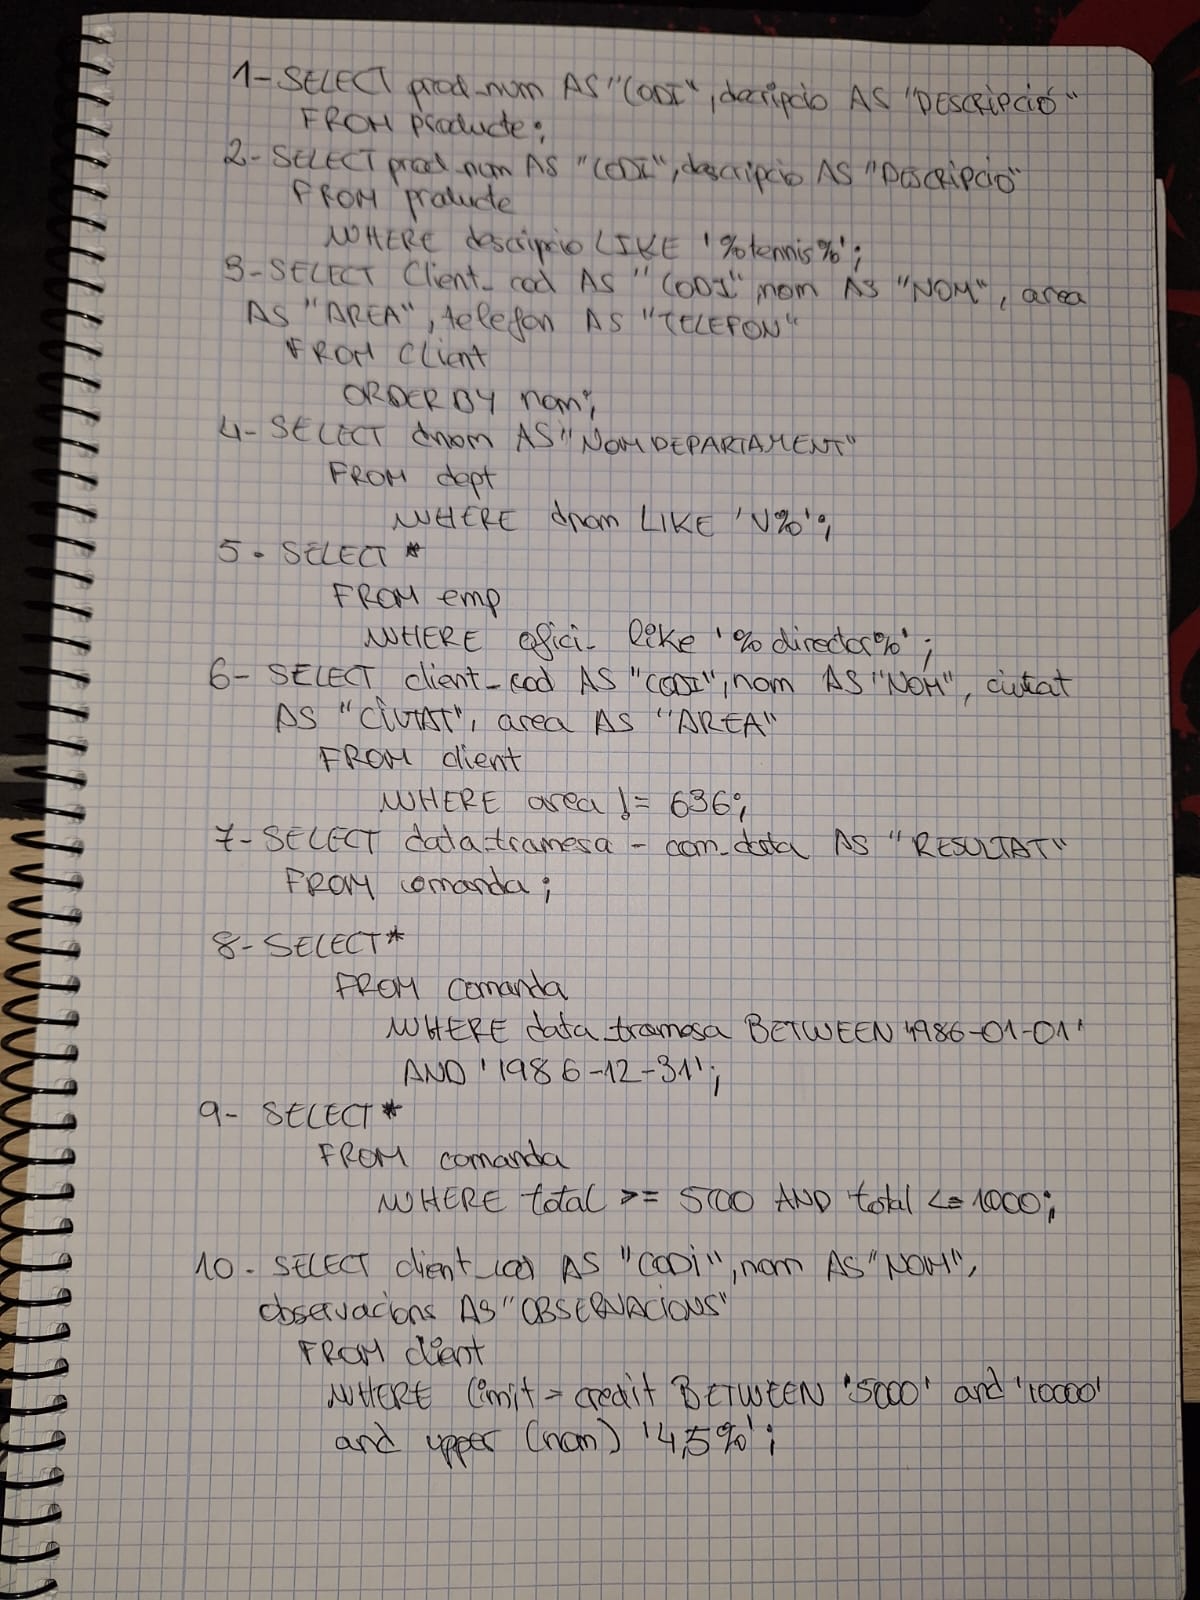 1- SELECT prod_num AS "CODI", decripcio AS "DESCRIPCIÓ"
FROM producte;
2- SELECT prod_num AS "CODI", descripcio AS "DESCRIPCIÓ"
FROM producte
WHERE descripcio LIKE '%tennis%';
3- SELECT Client_cod AS "CODI" nom AS "NOM", area
AS "AREA", telefon AS "TELEFON"
FROM Client
ORDER BY nom;
4- SELECT dnom AS "NOM DEPARTAMENT"
FROM dept
WHERE dnom LIKE 'V%';
5- SELECT *
FROM emp
WHERE ofici_ like '%director%';
6- SELECT client_cod AS "CODI", nom AS "NOM", ciutat
AS "CIUTAT", area AS "AREA"
FROM client
WHERE area != 636;
7- SELECT data_tramesa - com_data AS "RESULTAT"
FROM comanda;
8- SELECT *
FROM comanda
WHERE data_tramesa BETWEEN '1986-01-01'
AND '1986-12-31';
9- SELECT *
FROM comanda
WHERE total >= 500 AND total <= 1000;
10- SELECT client_cod AS "CODI", nom AS "NOM",
observacions AS "OBSERVACIONS"
FROM client
WHERE limit - credit BETWEEN '5000' and '10000'
and upper (nom) '45%';